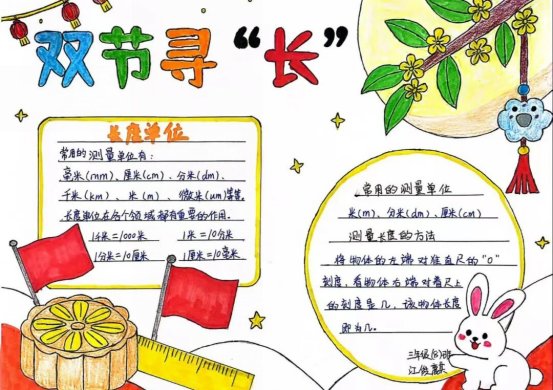 双节寻“长”
长度单位
常用的测量单位有：
毫米(mm)、厘米(cm)、分米(dm)、
千米(km)、米(m)、微米(um)等等。
长度单位在各个领域都有重要的作用。
1千米=1000米 1米=10分米
1分米=10厘米 1厘米=10毫米
常用的测量单位
米(m)、分米(dm)、厘米(cm)
测量长度的方法
将物体的左端对准直尺的“0”
刻度，看物体右端对着尺上
的刻度是几，该物体长度
即为几。
三年级(6)班
江